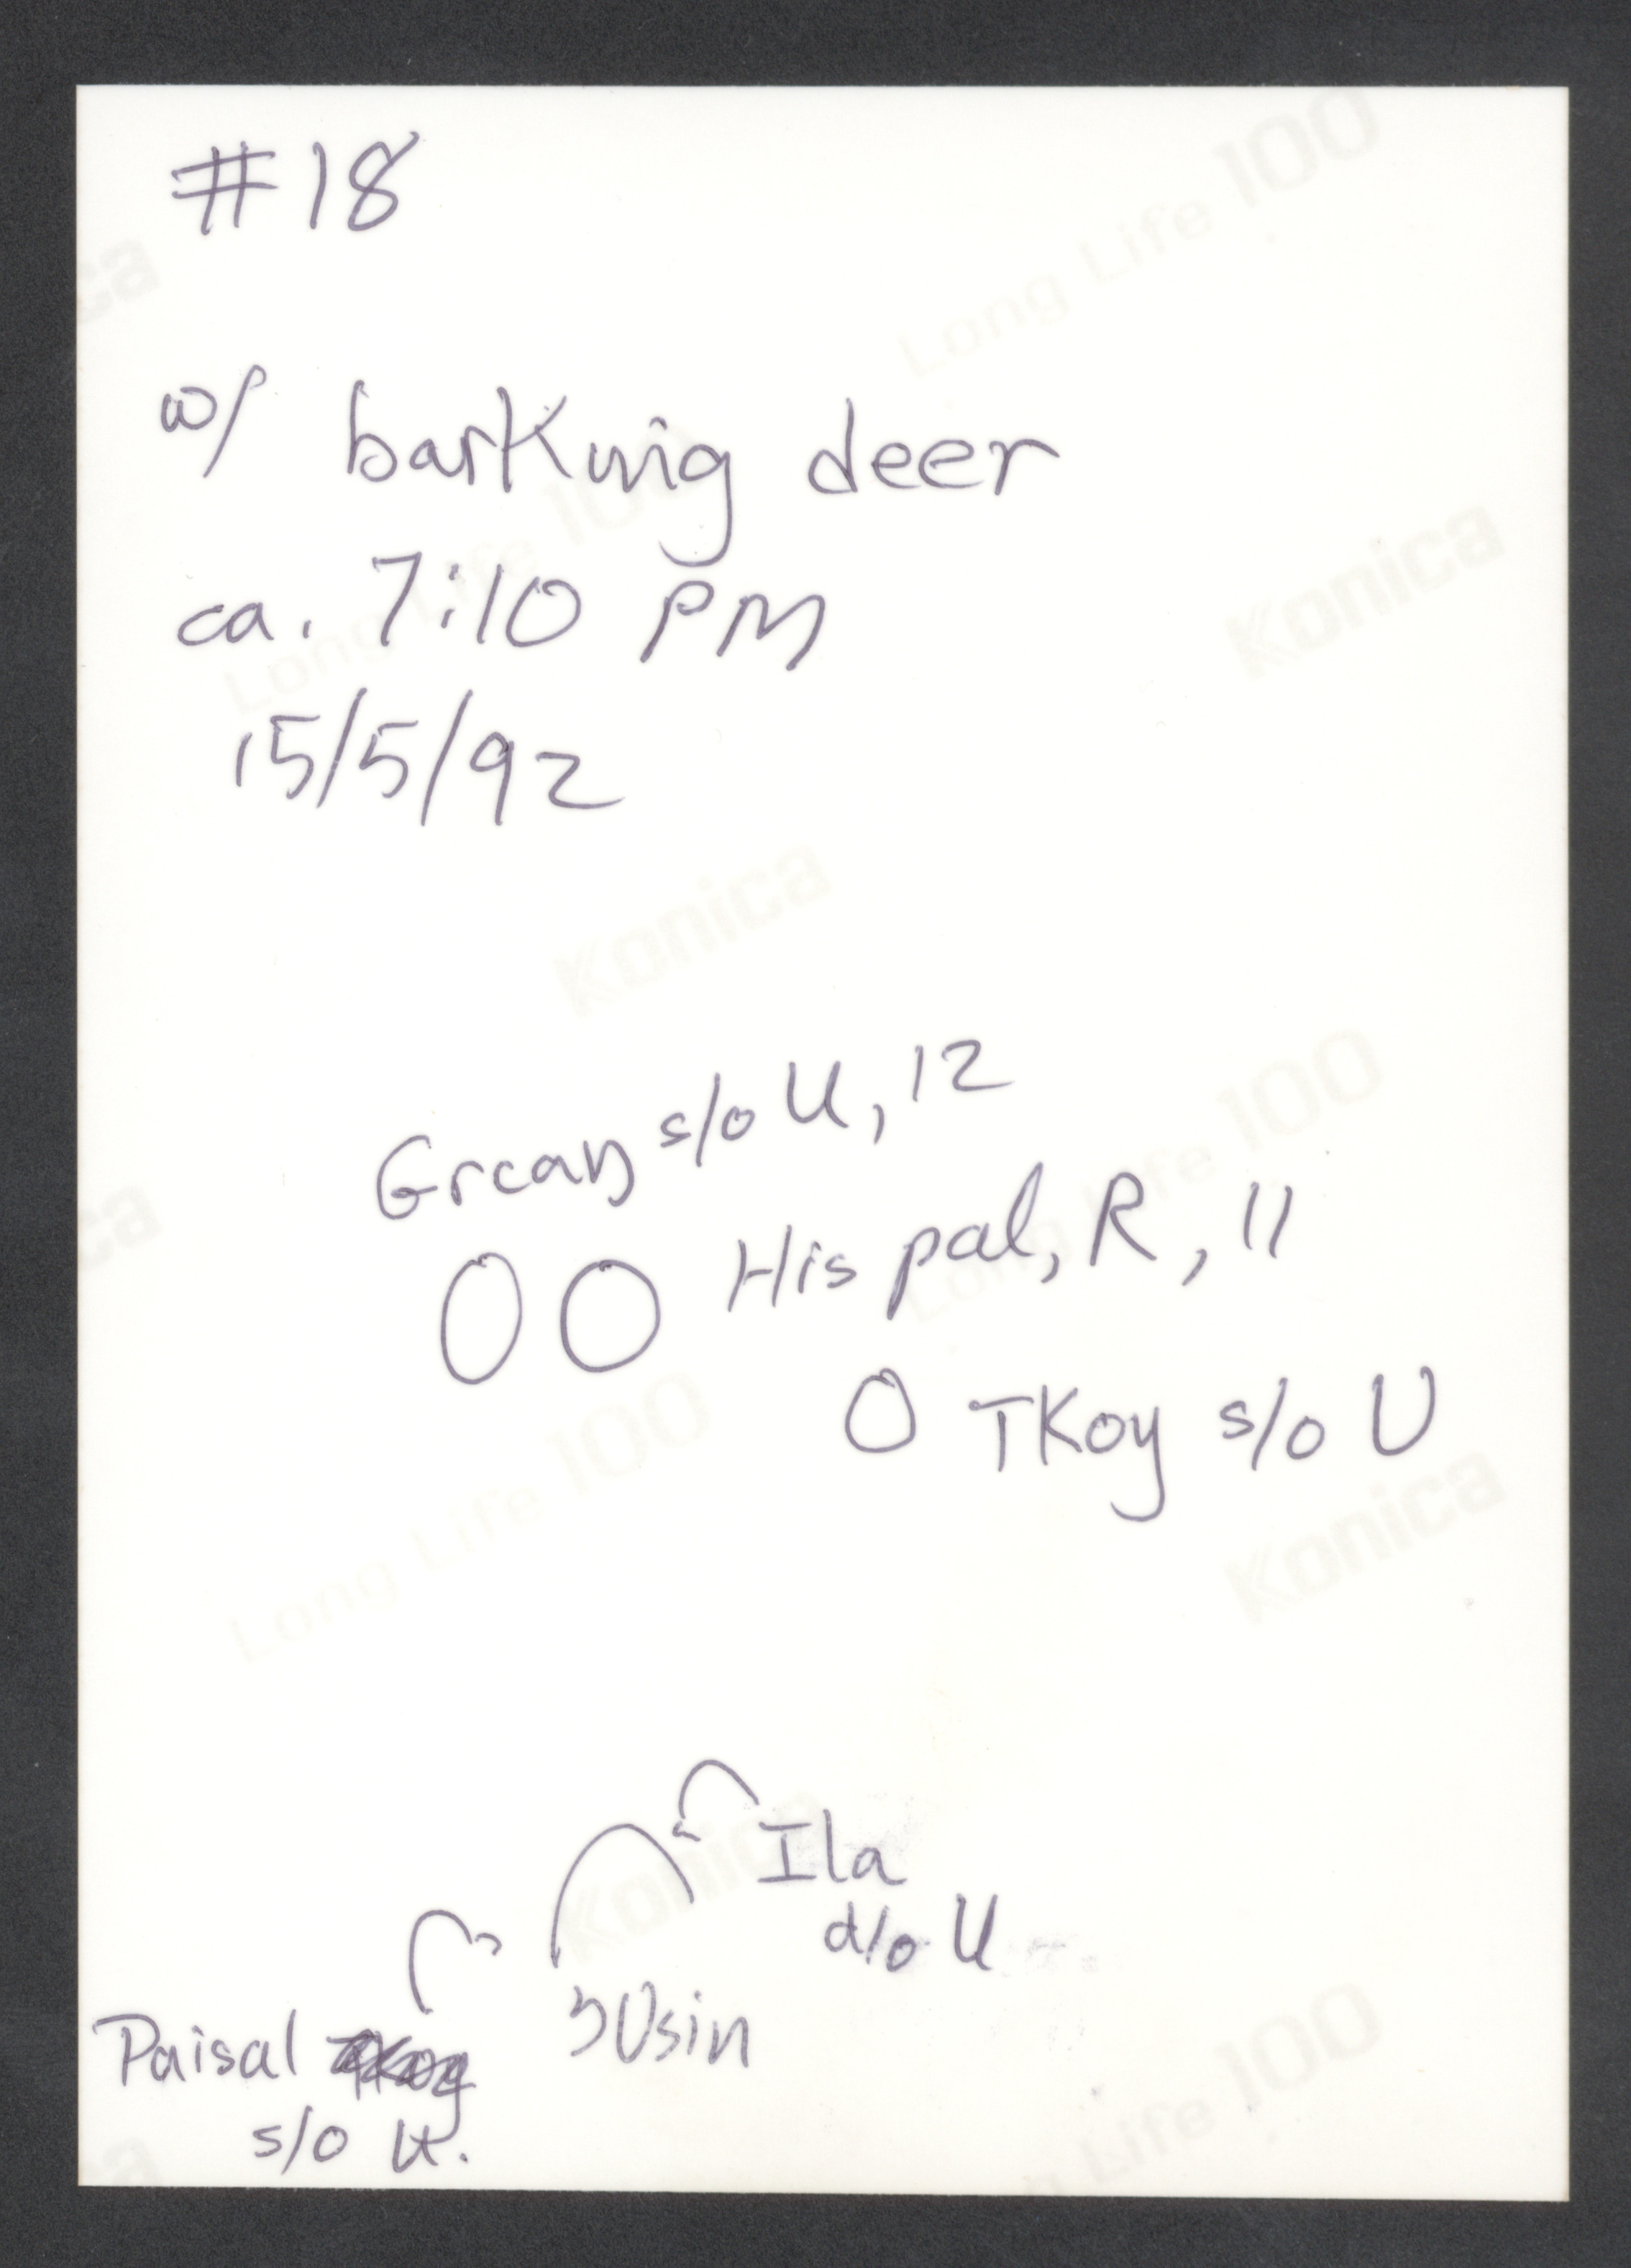 #18
w/ barking deer
ca. 7:10 PM
15/5/92
s/o U, 12
His pal, R, 11
TKoy s/o U
Ila
d/o U
Paisal
s/o U.
Konica
Long Life 100